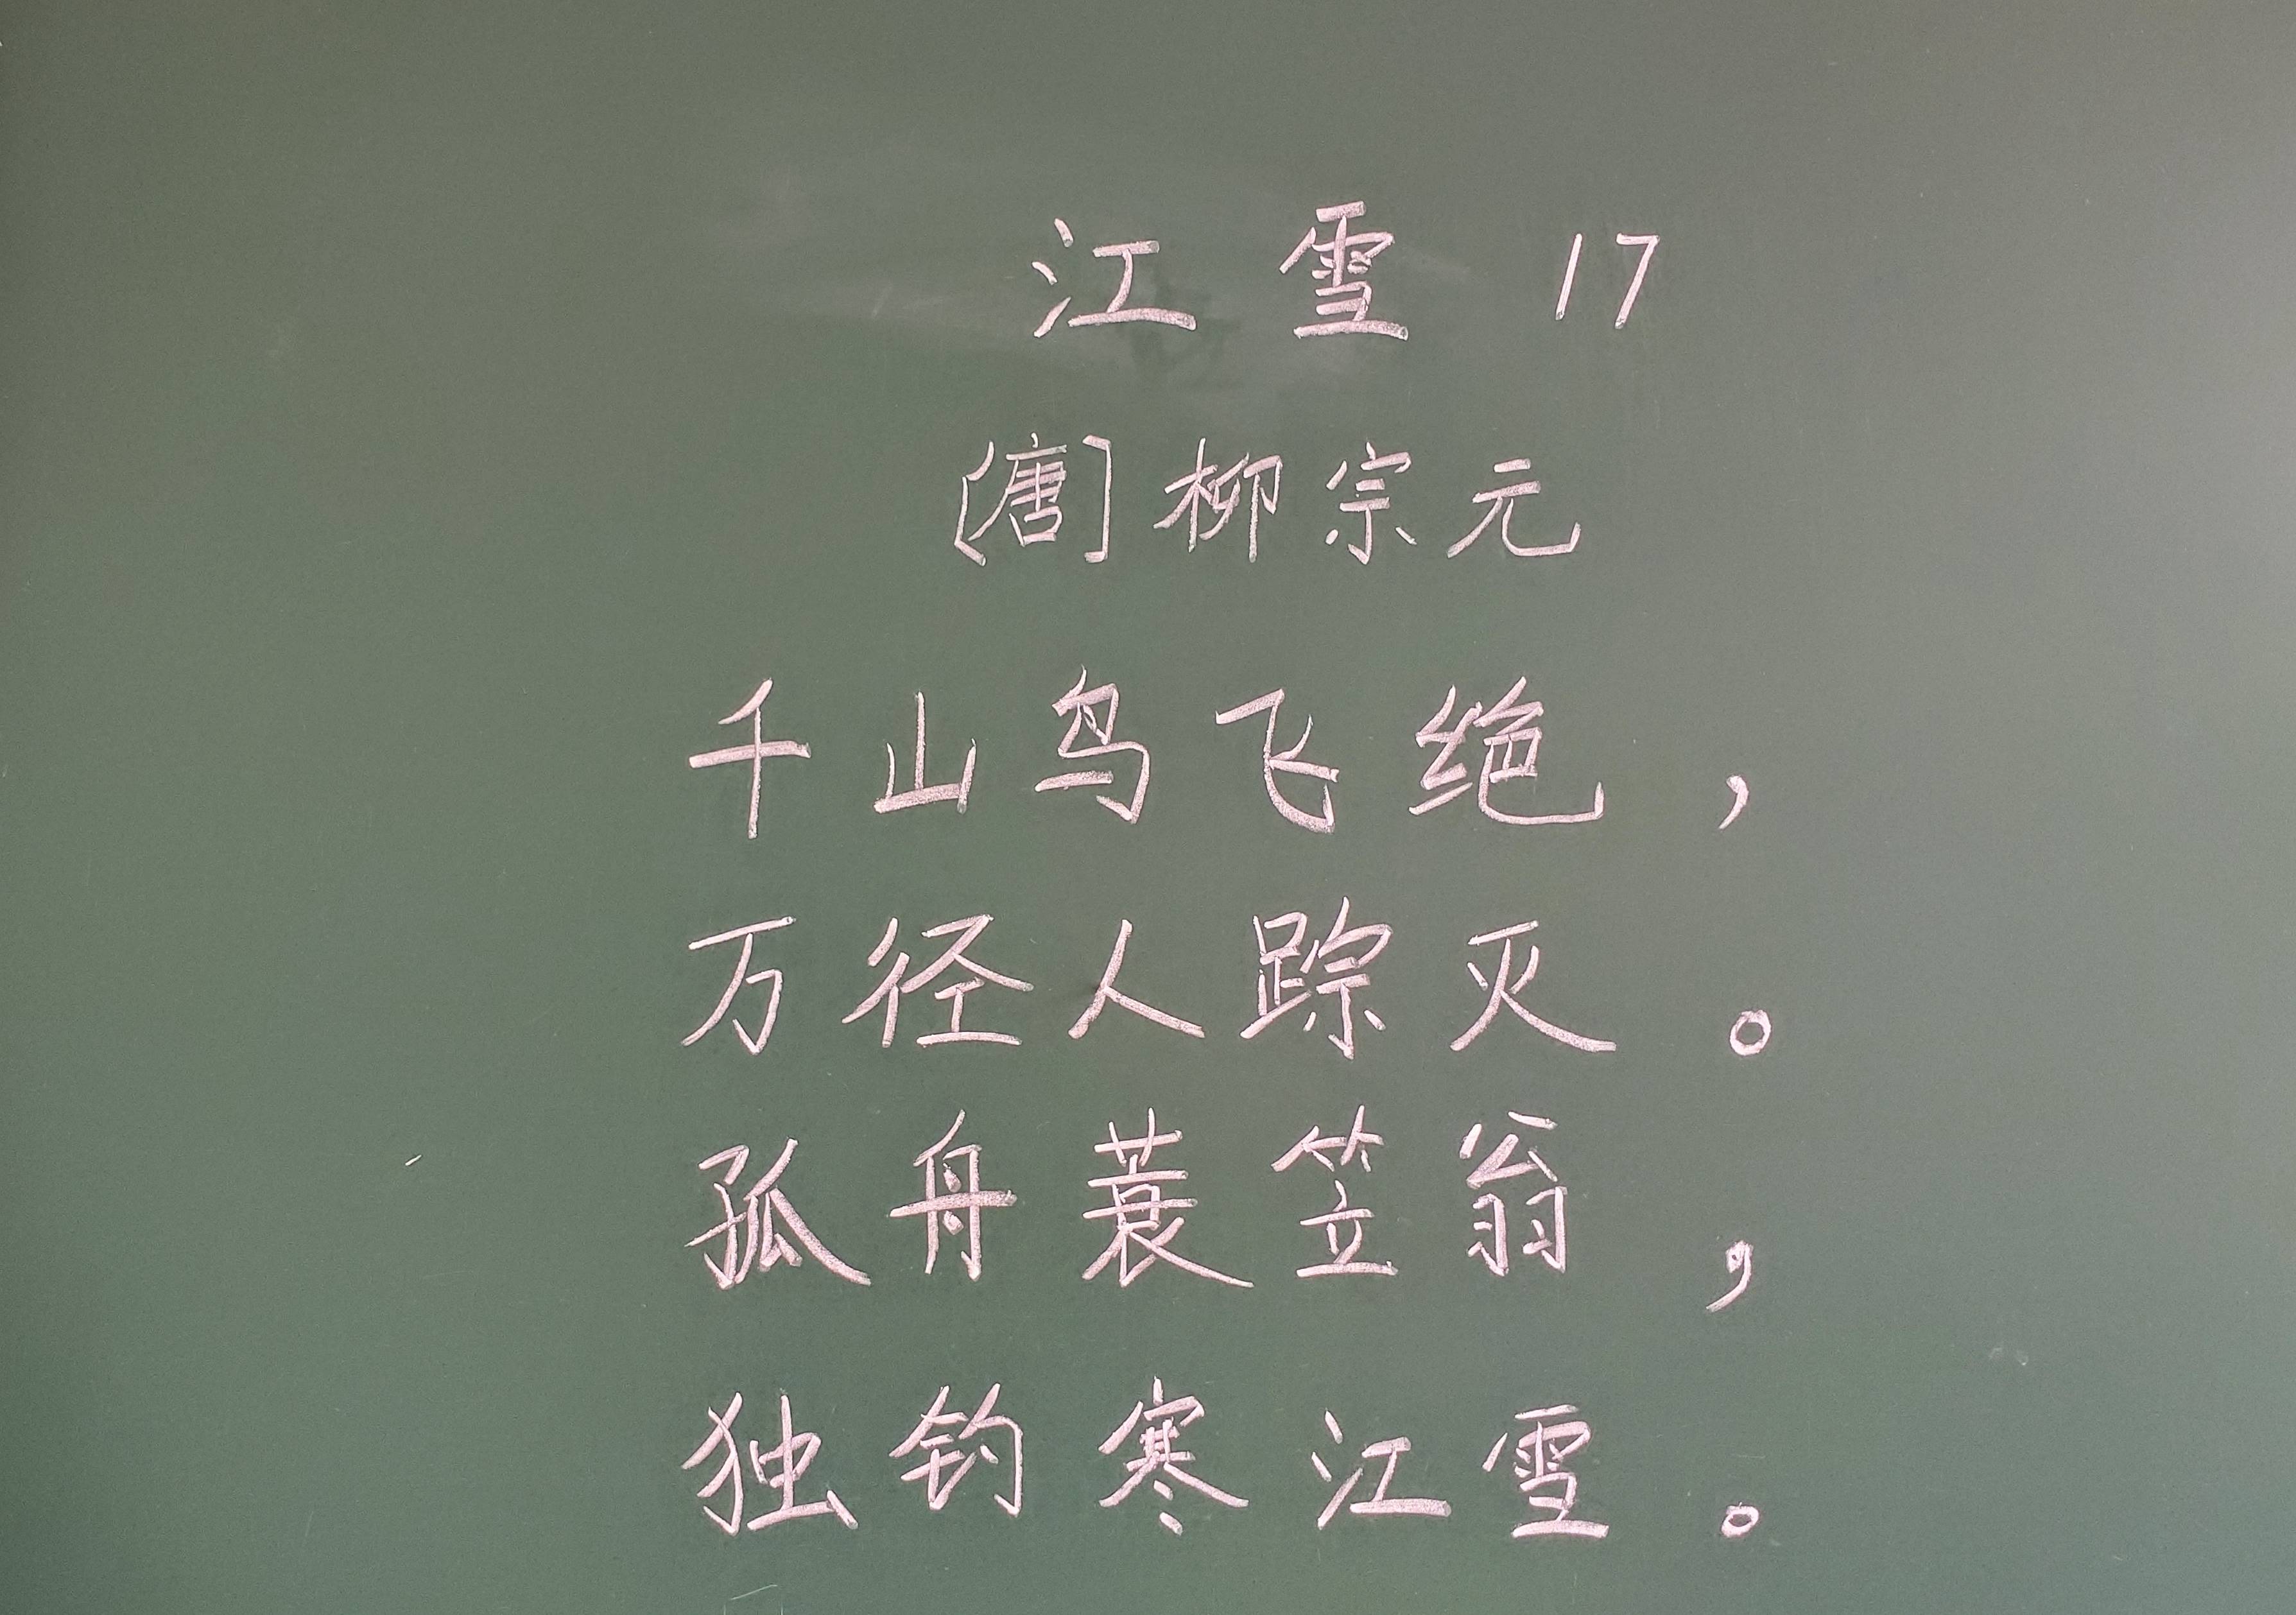 江雪 17
[唐]柳宗元
千山鸟飞绝，
万径人踪灭。
孤舟蓑笠翁，
独钓寒江雪。